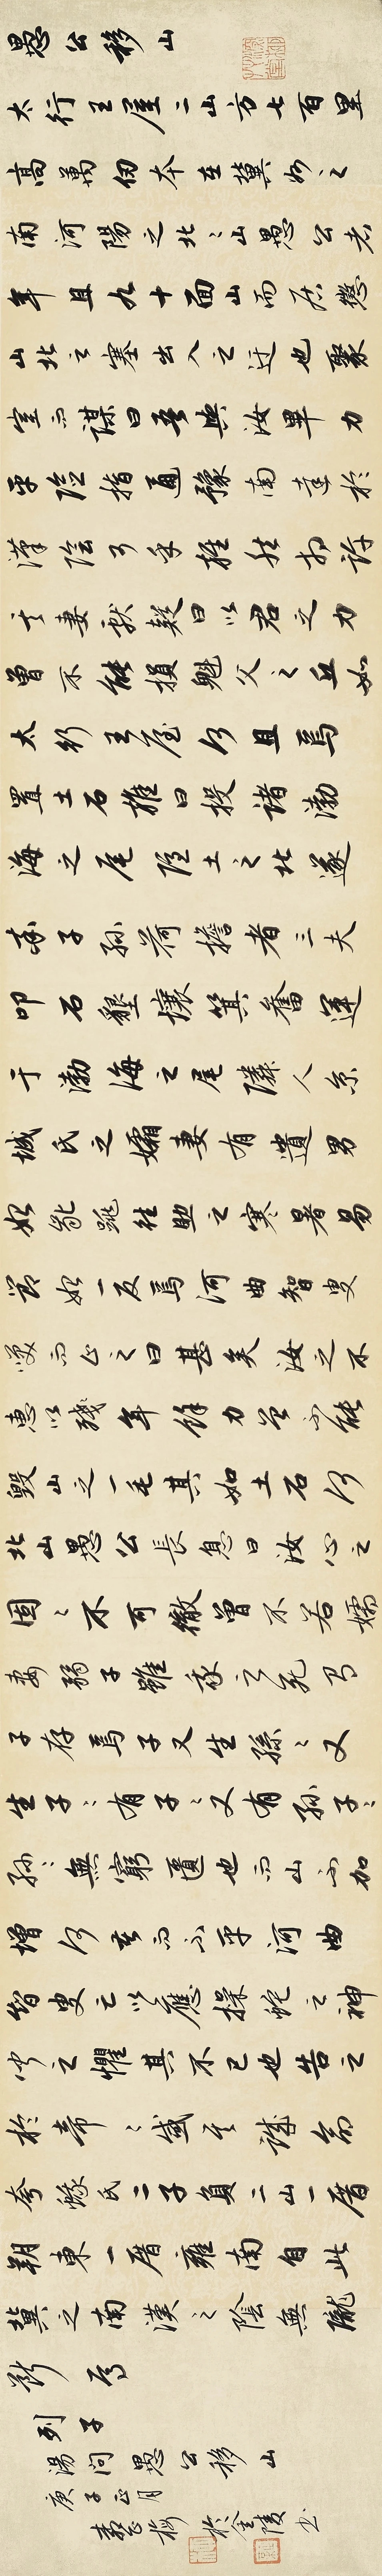 愚公移山
太行王屋二山方七百里
高萬仞本在冀州之
南河陽之北〻山愚公者
年且九十面山而居懲
山北之塞出入之迂也聚
室而謀曰吾與汝畢力
平險指通豫南達於
漢陰可乎雜然相許
其妻獻疑曰以君之力
曾不能損魁父之丘如
太行王屋何且焉
置土石雜曰投諸渤
海之尾隱土之北遂
率子孫荷擔者三夫
叩石墾壤箕畚運
于渤海之尾隣人京
城氏之孀妻有遺男
始齔跳往助之寒暑易
節始一反焉河曲智叟
笑而止之曰甚矣汝之不
惠以殘年餘力曾不能
毀山之一毛其如土石何
北山愚公長息曰汝心之
固〻不可徹曾不若孀
妻弱子雖我之死有
子存焉子又生孫〻又
生子〻有子〻又有孫子〻
孫〻無窮匱也而山不加
增何苦而不平河曲
智叟亡以應操蛇之神
聞之懼其不已也告之
於帝〻感其誠命
夸蛾氏二子負二山一厝
朔東一厝雍南自此
冀之南漢之陰無隴
斷焉
列子
湯問愚公移山
庚子正月
於金陵書